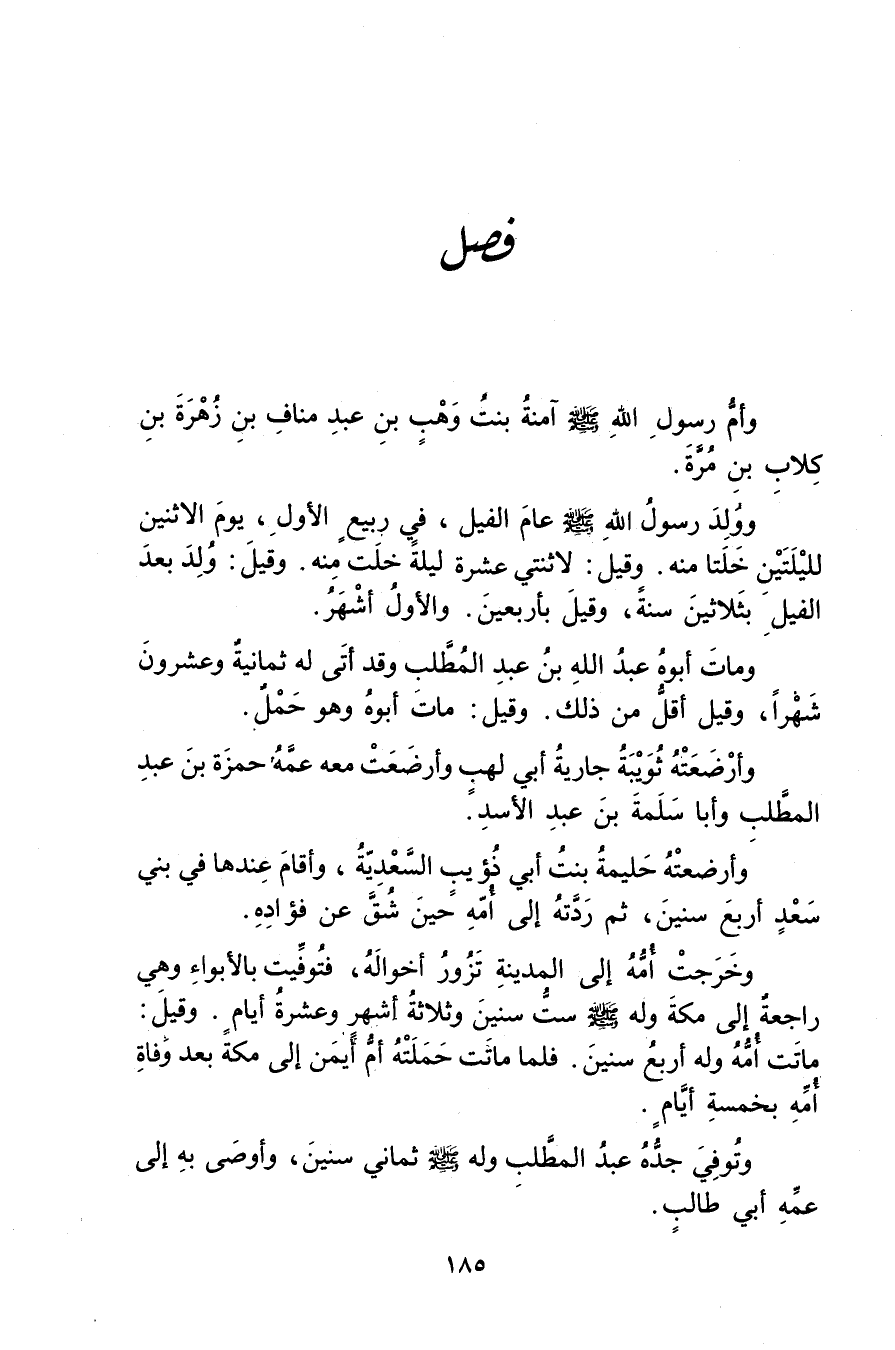 فصل
وأمُّ رسولِ اللهِ ﷺ آمنةُ بنتُ وَهْبٍ بنِ عبدِ منافِ بنِ زُهْرَةَ بنِ
كِلابِ بنِ مُرَّةَ.
ووُلِدَ رسولُ اللهِ ﷺ عامَ الفيل ، في ربيعٍ الأولِ، يومَ الاثنين
لليْلَتَيْن خَلَتا منه. وقيل: لاثنتي عشرة ليلةً خلَت مِنه. وقيلَ: وُلِدَ بعدَ
الفيلِ بثَلاثينَ سنةً، وقيلَ بأربعينَ. والأولُ أشْهَرُ.
وماتَ أبوهُ عبدُ اللهِ بنُ عبدِ المُطَّلب وقد أتَى له ثمانيةٌ وعشرونَ
شَهْراً، وقيل أقلُّ من ذلك. وقيل: ماتَ أبوهُ وهو حَمْلٌ.
وأرْضَعَتْهُ ثُوَيْبَةُ جاريةُ أبي لهبٍ وأرضَعَتْ معه عمَّهُ حمزَة بنَ عبدِ
المطَّلبِ وأبا سَلَمةَ بنَ عبدِ الأسدِ.
وأرضعتْهُ حَليمةُ بنتُ أبي ذُؤيبٍ السَّعْديّةُ ، وأقامَ عِندها في بني
سَعْدٍ أربعَ سنينَ، ثم رَدَّتهُ إلى أُمّهِ حينَ شُقَّ عن فؤادِهِ.
وخَرَجتْ أُمُّهُ إلى المدينةِ تَزُورُ أخوالَهُ، فتُوفِّيت بالأبواءِ وهي
راجعةٌ إلى مكةَ وله ﷺ ستُّ سنينَ وثلاثةُ أشهرٍ وعشرةُ أيامٍ. وقيلَ:
ماتَت أُمُّهُ وله أربعُ سنينَ. فلما ماتَت حَمَلَتْهُ أمُّ أيمَن إلى مكةَ بعد وَفاةِ
أُمِّهِ بخمسةِ أيَّامٍ.
وتُوفِيَ جدُّهُ عبدُ المطَّلبِ وله ﷺ ثماني سنينَ، وأوصَى بهِ إلى
عمِّهِ أبي طالبٍ.
١٨٥